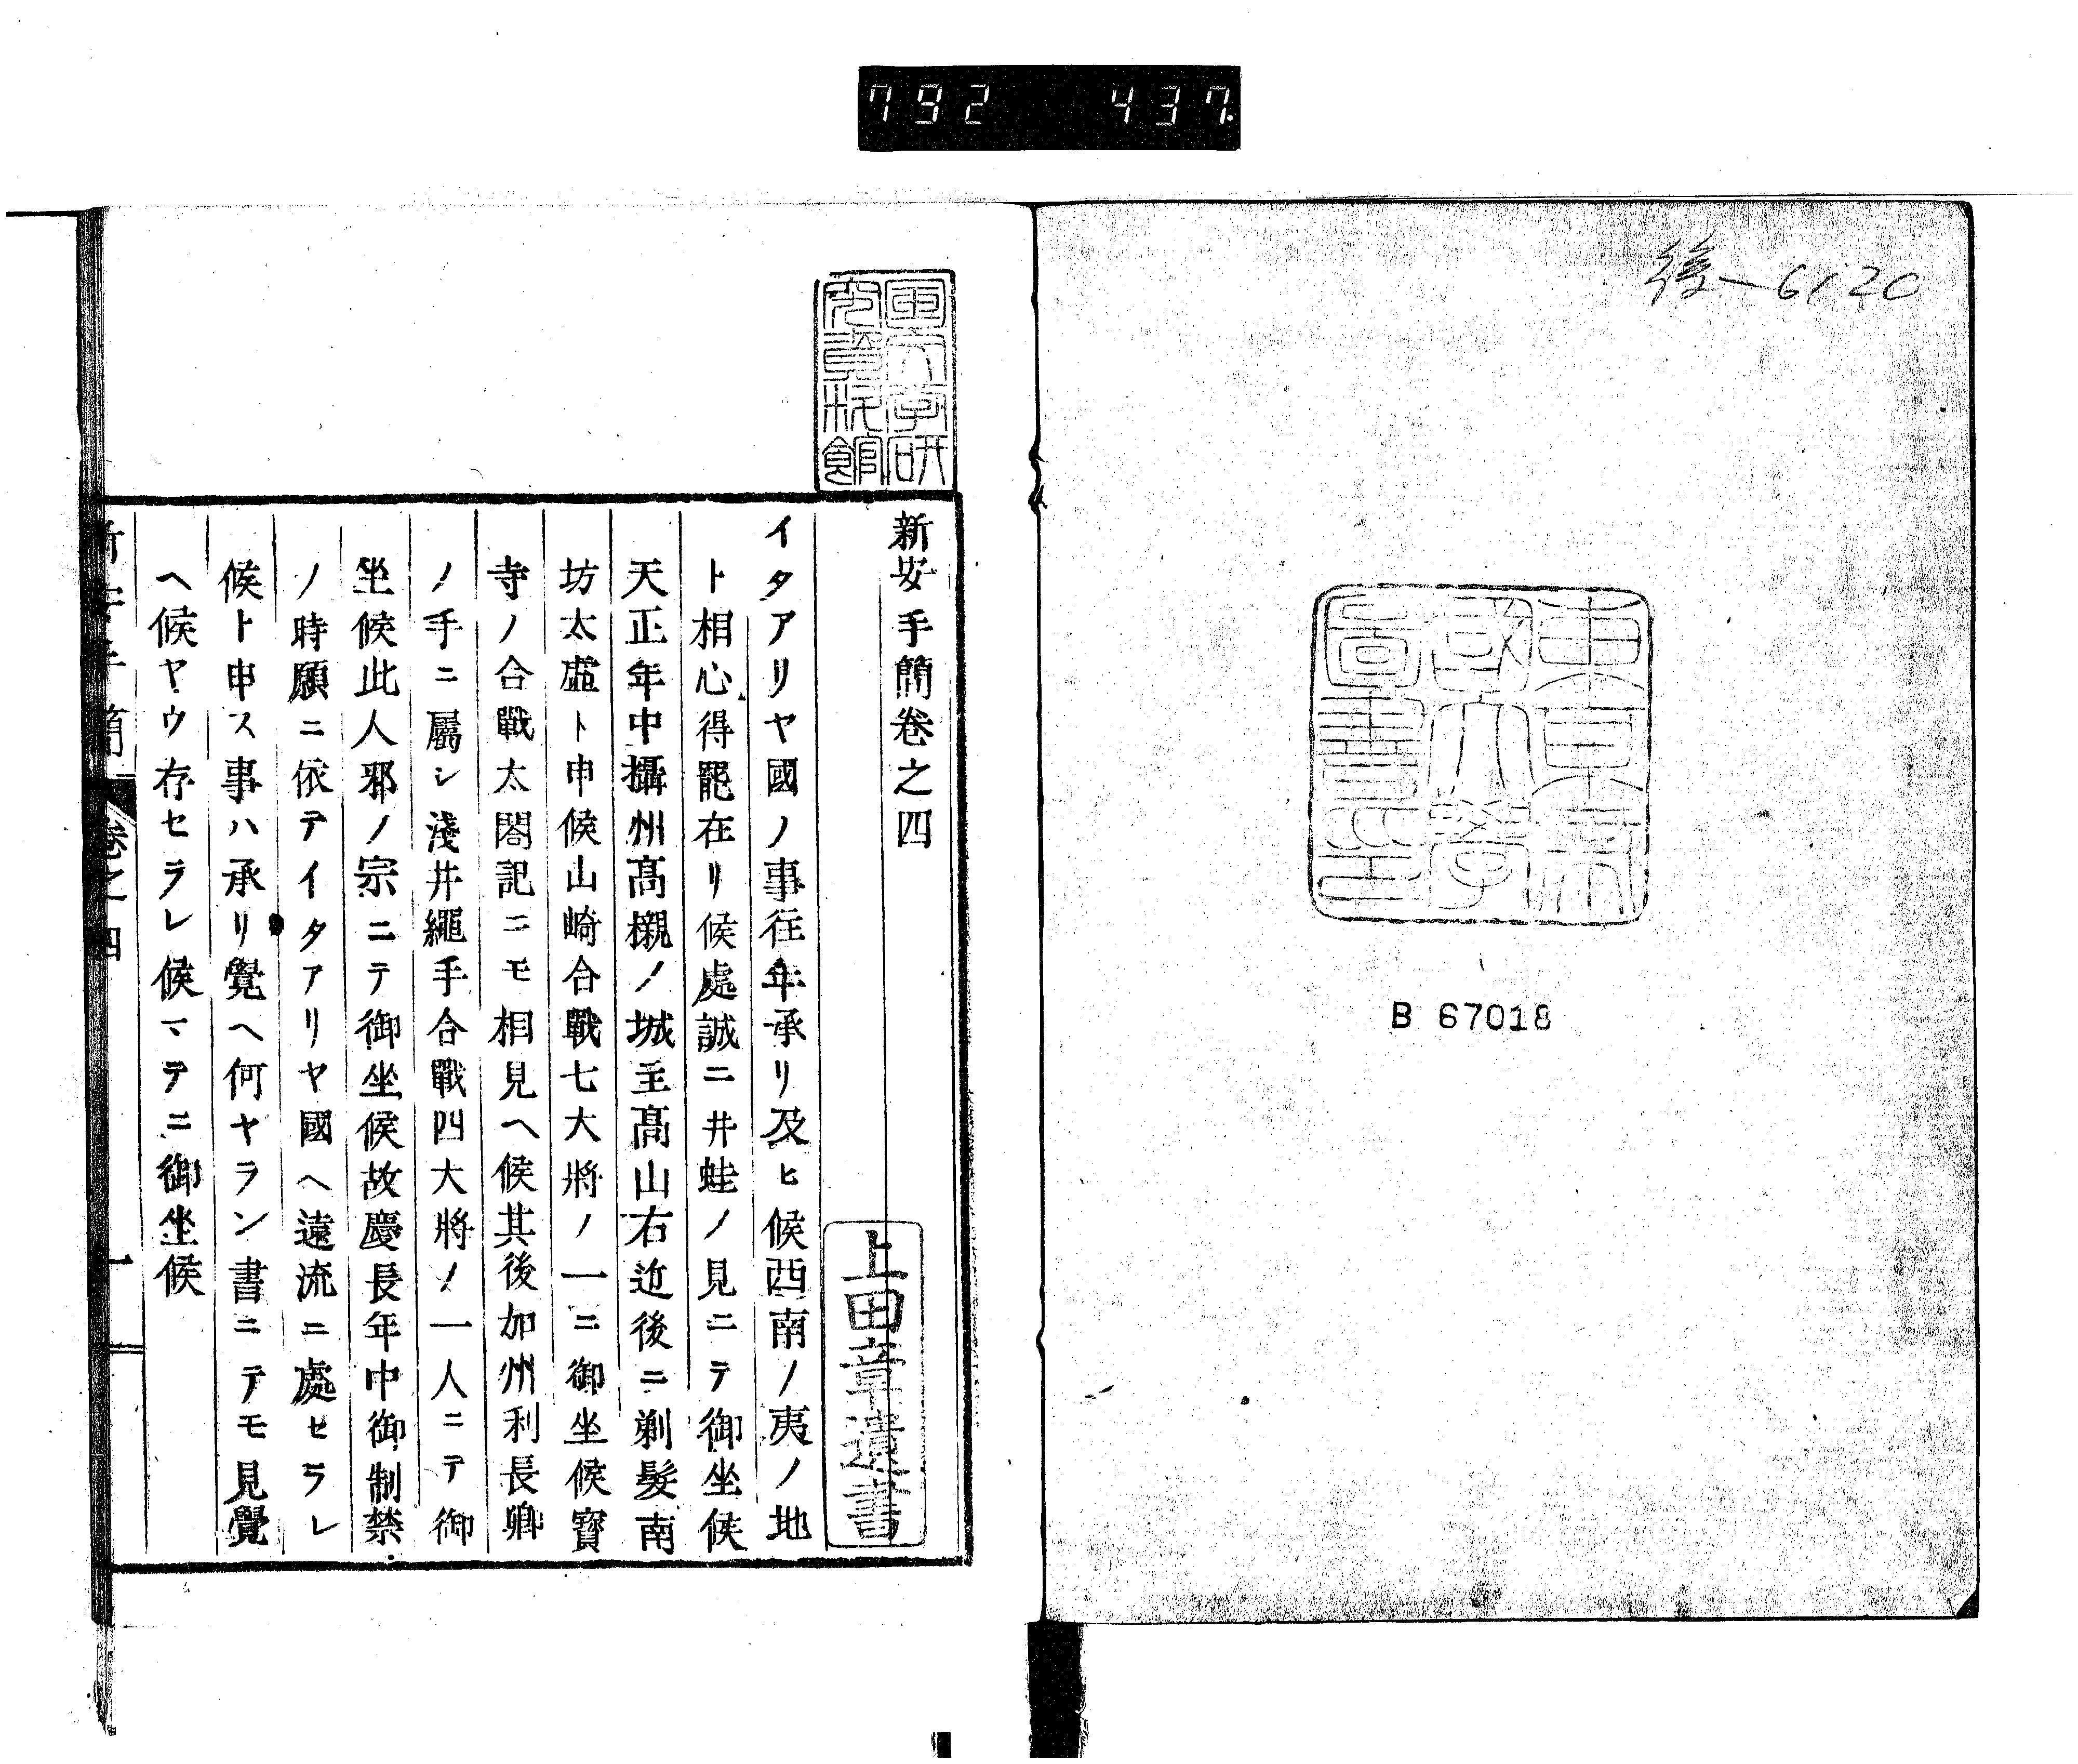 792 437.
後-6120
東京帝
國大學
圖書印
B 67018
新安手簡卷之四
上田章遺書
イタアリヤ國ノ事往年承リ及ヒ候西南ノ夷ノ地
ト相心得罷在リ候處誠ニ井蛙ノ見ニテ御坐候
天正年中攝州髙槻ノ城主髙山右近後ニ剃髮南
坊太虛ト申候山崎合戰七大將ノ一ニ御坐候寳
寺ノ合戰太閤記ニモ相見ヘ候其後加州利長卿
ノ手ニ屬シ淺井繩手合戰四大將ノ一人ニテ御
坐候此人邪ノ宗ニテ御坐候故慶長年中御制禁
ノ時願ニ依テイタアリヤ國ヘ遠流ニ處セラレ
候ト申ス事ハ承リ覺ヘ何ヤラン書ニテモ見覺
ヘ候ヤウ存セラレ候マテニ御坐候
卷之四
一